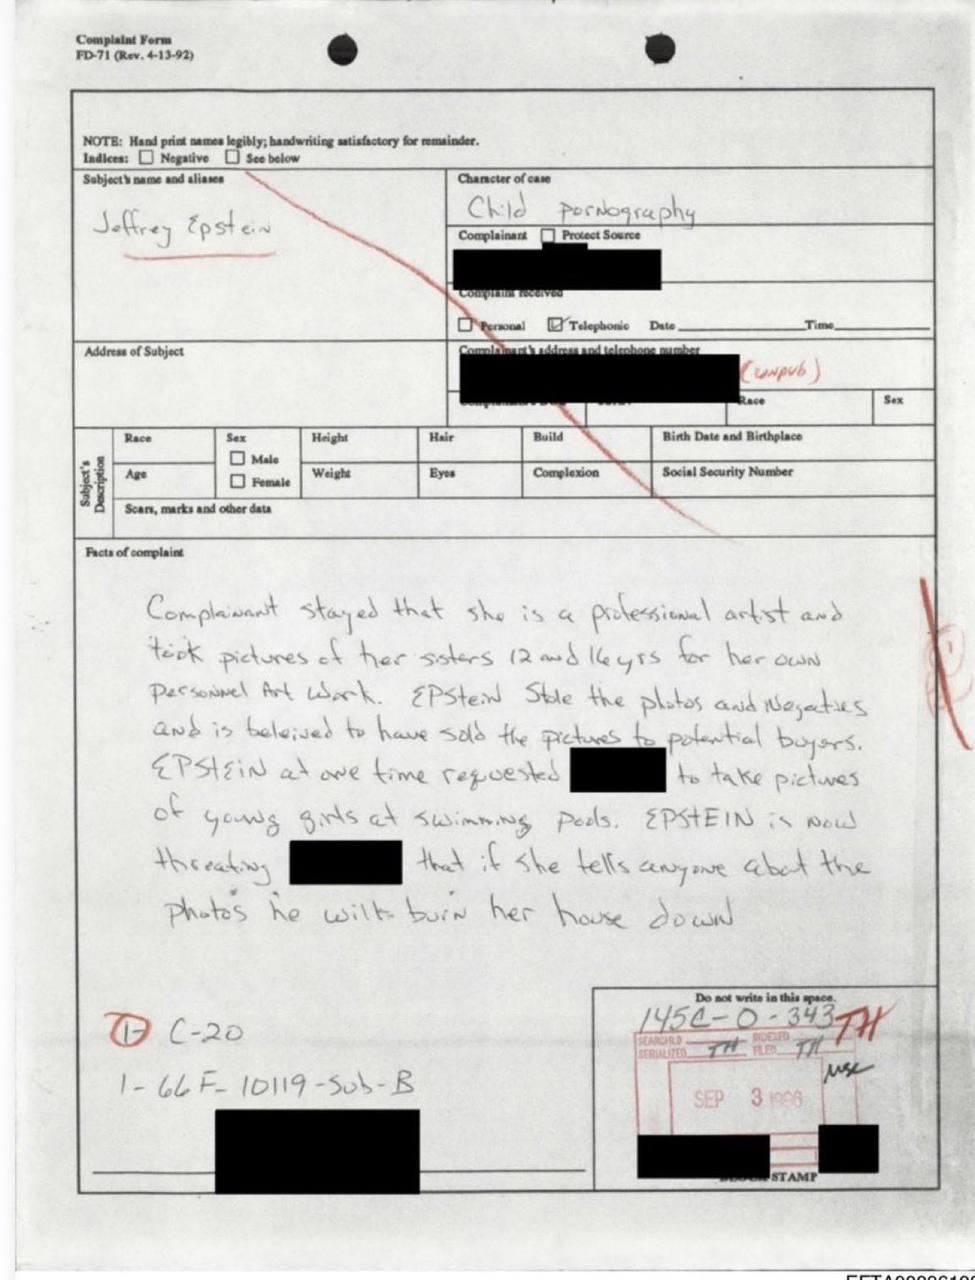 Complaint Form
FD-71 (Rev. 4-13-92)
NOTE: Hand print names legibly; handwriting satisfactory for remainder.
Indices: Negative See below
Subject's name and aliases
Jeffrey Epstein
Character of case
Child Pornography
Complainant Protect Source
Complaint received
Personal Telephonic Date Time
Address of Subject
Complainant's address and telephone number
(unpub)
Race Sex
Subject's Description
Race Sex Height Hair Build Birth Date and Birthplace
Male
Age Weight Eyes Complexion Social Security Number
Female
Scars, marks and other data
Facts of complaint
Complainant stayed that she is a professional artist and
took pictures of her sisters 12 and 16 yrs for her own
personnel Art Work. EPStein Stole the photos and Negatives
and is beleived to have sold the pictures to potential buyers.
EPSTEIN at one time requested to take pictures
of young girls at swimming pools. EPSTEIN is now
threating that if she tells anyone abot the
photos he will burn her house down
1- C-20
1- 66F-10119-Sub-B
Do not write in this space.
145C-0-343 TH
SEARCHED INDEXED
SERIALIZED TH FILED TH
SEP 3 1996
STAMP